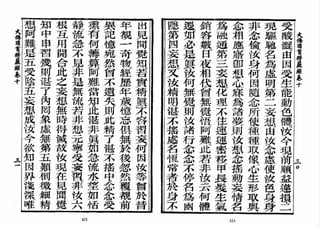 大佛頂首楞嚴經卷十
三〇
受酸澀由因受生能動色體汝今現前順益違損二
現驅馳名為虛明第二妄想由汝念慮使汝色身身
非念倫汝身何因隨念所使種種取像心生形取與
念相應寤即想心寐為諸夢則汝想念搖動妄情名
為融通第三妄想化理不住運運密移甲長髮生氣
銷容皺日夜相代曾無覺悟阿難此若非汝云何體
遷如必是真汝何無覺則汝諸行念念不停名為幽
隱第四妄想又汝精明湛不搖處名恆常者於身不
424
出見聞覺知若實精真不容習妄何因汝等曾於昔
年覩一奇物經歷年歲憶忘俱無於後忽然覆覩前
異記憶宛然曾不遺失則此精了湛不搖中念念受
熏有何籌算阿難當知此湛非真如急流水望如恬
靜流急不見非是無流若非想元寧受妄習非汝六
根互用開合此之妄想無時得滅故汝現在見聞覺
知中串習幾則湛了內罔象虛無第五顛倒微細精
想阿難是五受陰五妄想成汝今欲知因界淺深唯
大佛頂首楞嚴經卷十
三一
425